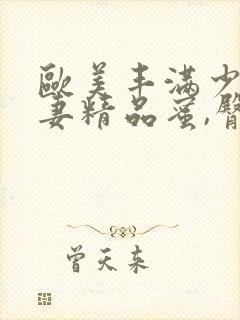 歐美丰滿少
妻精品蜜,臀
曾天來